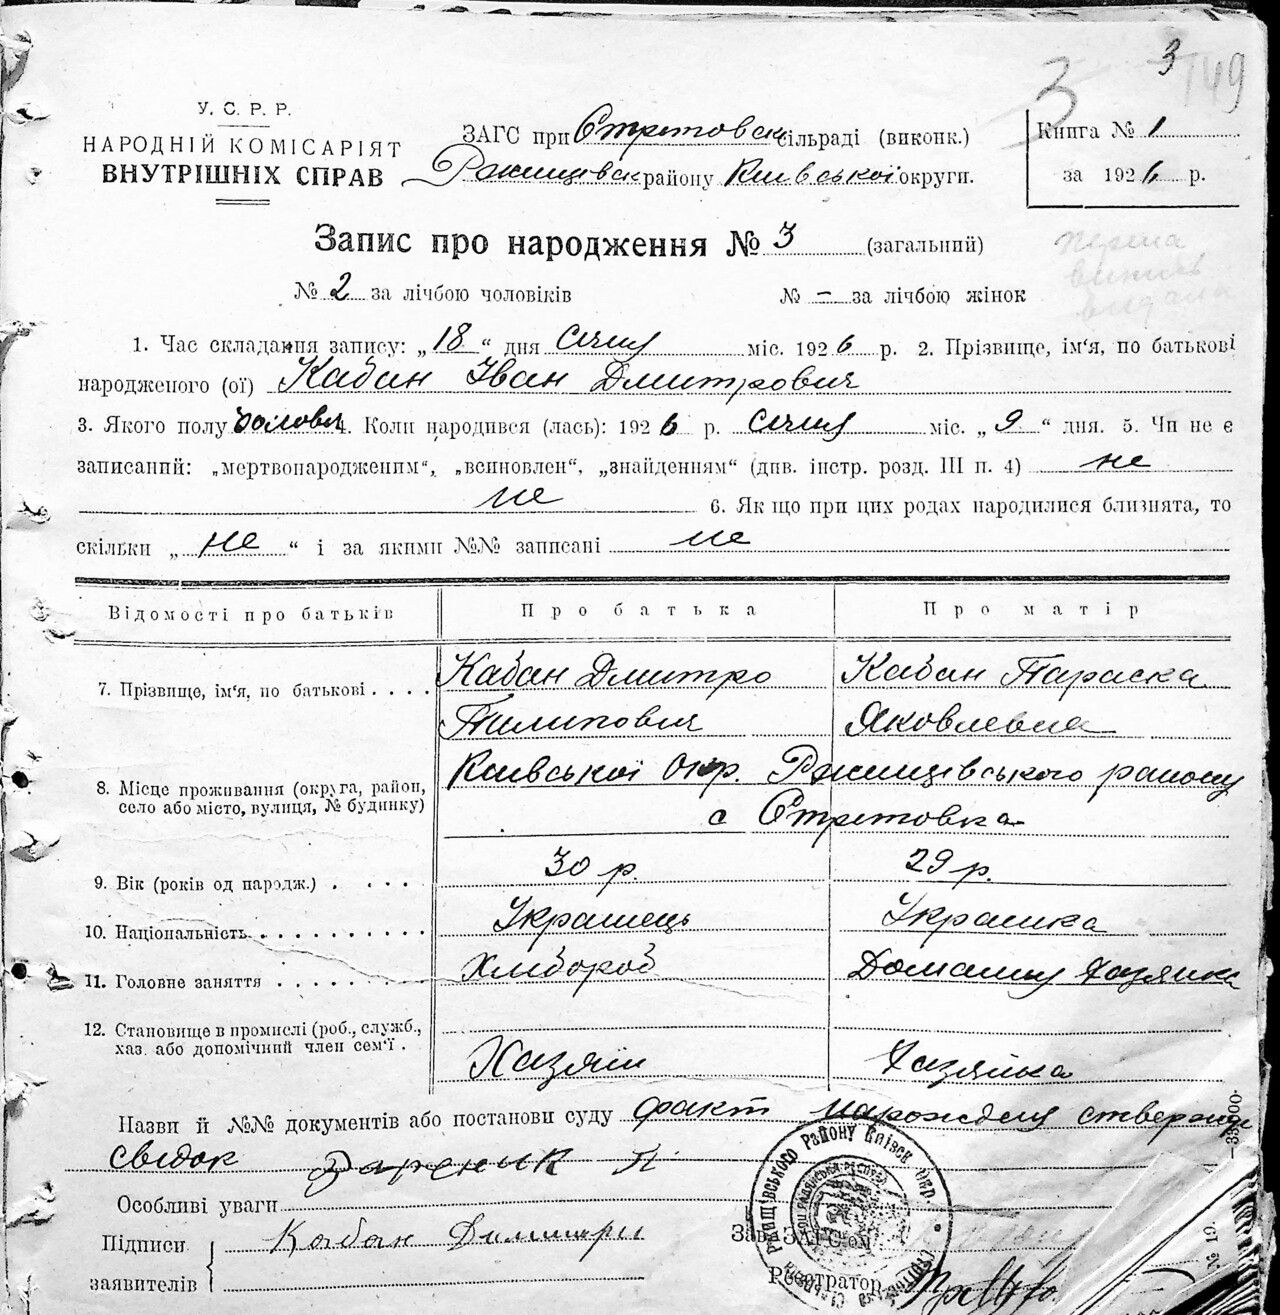 3
3 149
У. С. Р. Р.
НАРОДНІЙ КОМІСАРІЯТ
ВНУТРІШНІХ СПРАВ
ЗАГС при Стретовск сільраді (виконк.)
Ржищевск району Київської округи.
Книга № 1
за 1926 р.
Запис про народження № 3 (загальний)
перша
випись
видана
№ 2 за лічбою чоловіків № – за лічбою жінок
1. Час складання запису: „18“ дня січня міс. 1926 р. 2. Прізвище, ім‘я, по батькові
народженого (ої) Кабан Іван Дмитрович
3. Якого полу чоловіч 4. Коли народився (лась): 1926 р. січня міс. „9“ дня. 5. Чи не є
записаний: „мертвонародженим“, „всиновлен“, „знайденням“ (див. інстр. розд. III п. 4) не
не 6. Як що при цих родах народилися близнята, то
скільки „не“ і за якими №№ записані не
Відомості про батьків Про батька Про матір
7. Прізвище, ім‘я, по батькові . . . . Кабан Дмитро Кабан Параска
Пилипович Яковлевна
8. Місце проживання (округа, район, Київської окр. Ржищівського району
село або місто, вулиця, № будинку) с Стретовка
9. Вік (років од народж.) . . . . . 30 р. 29 р.
10. Національність . . . . . . . . . . Українець Українка
11. Головне заняття . . . . . . . . . Хлібороб Домашня хазяйка
12. Становище в промислі (роб., служб.,
хаз. або допомічний член сем‘ї . Хазяїн Хазяйка
Назви й №№ документів або постанови суду факт народження стверджує
свідок
Особливі уваги
Підписи Кабан Димитри
заявителів
Зав. ЗАГС‘ом
Реєстратор
Ржищівського Району Київск. Окр.
35000
№ 12.